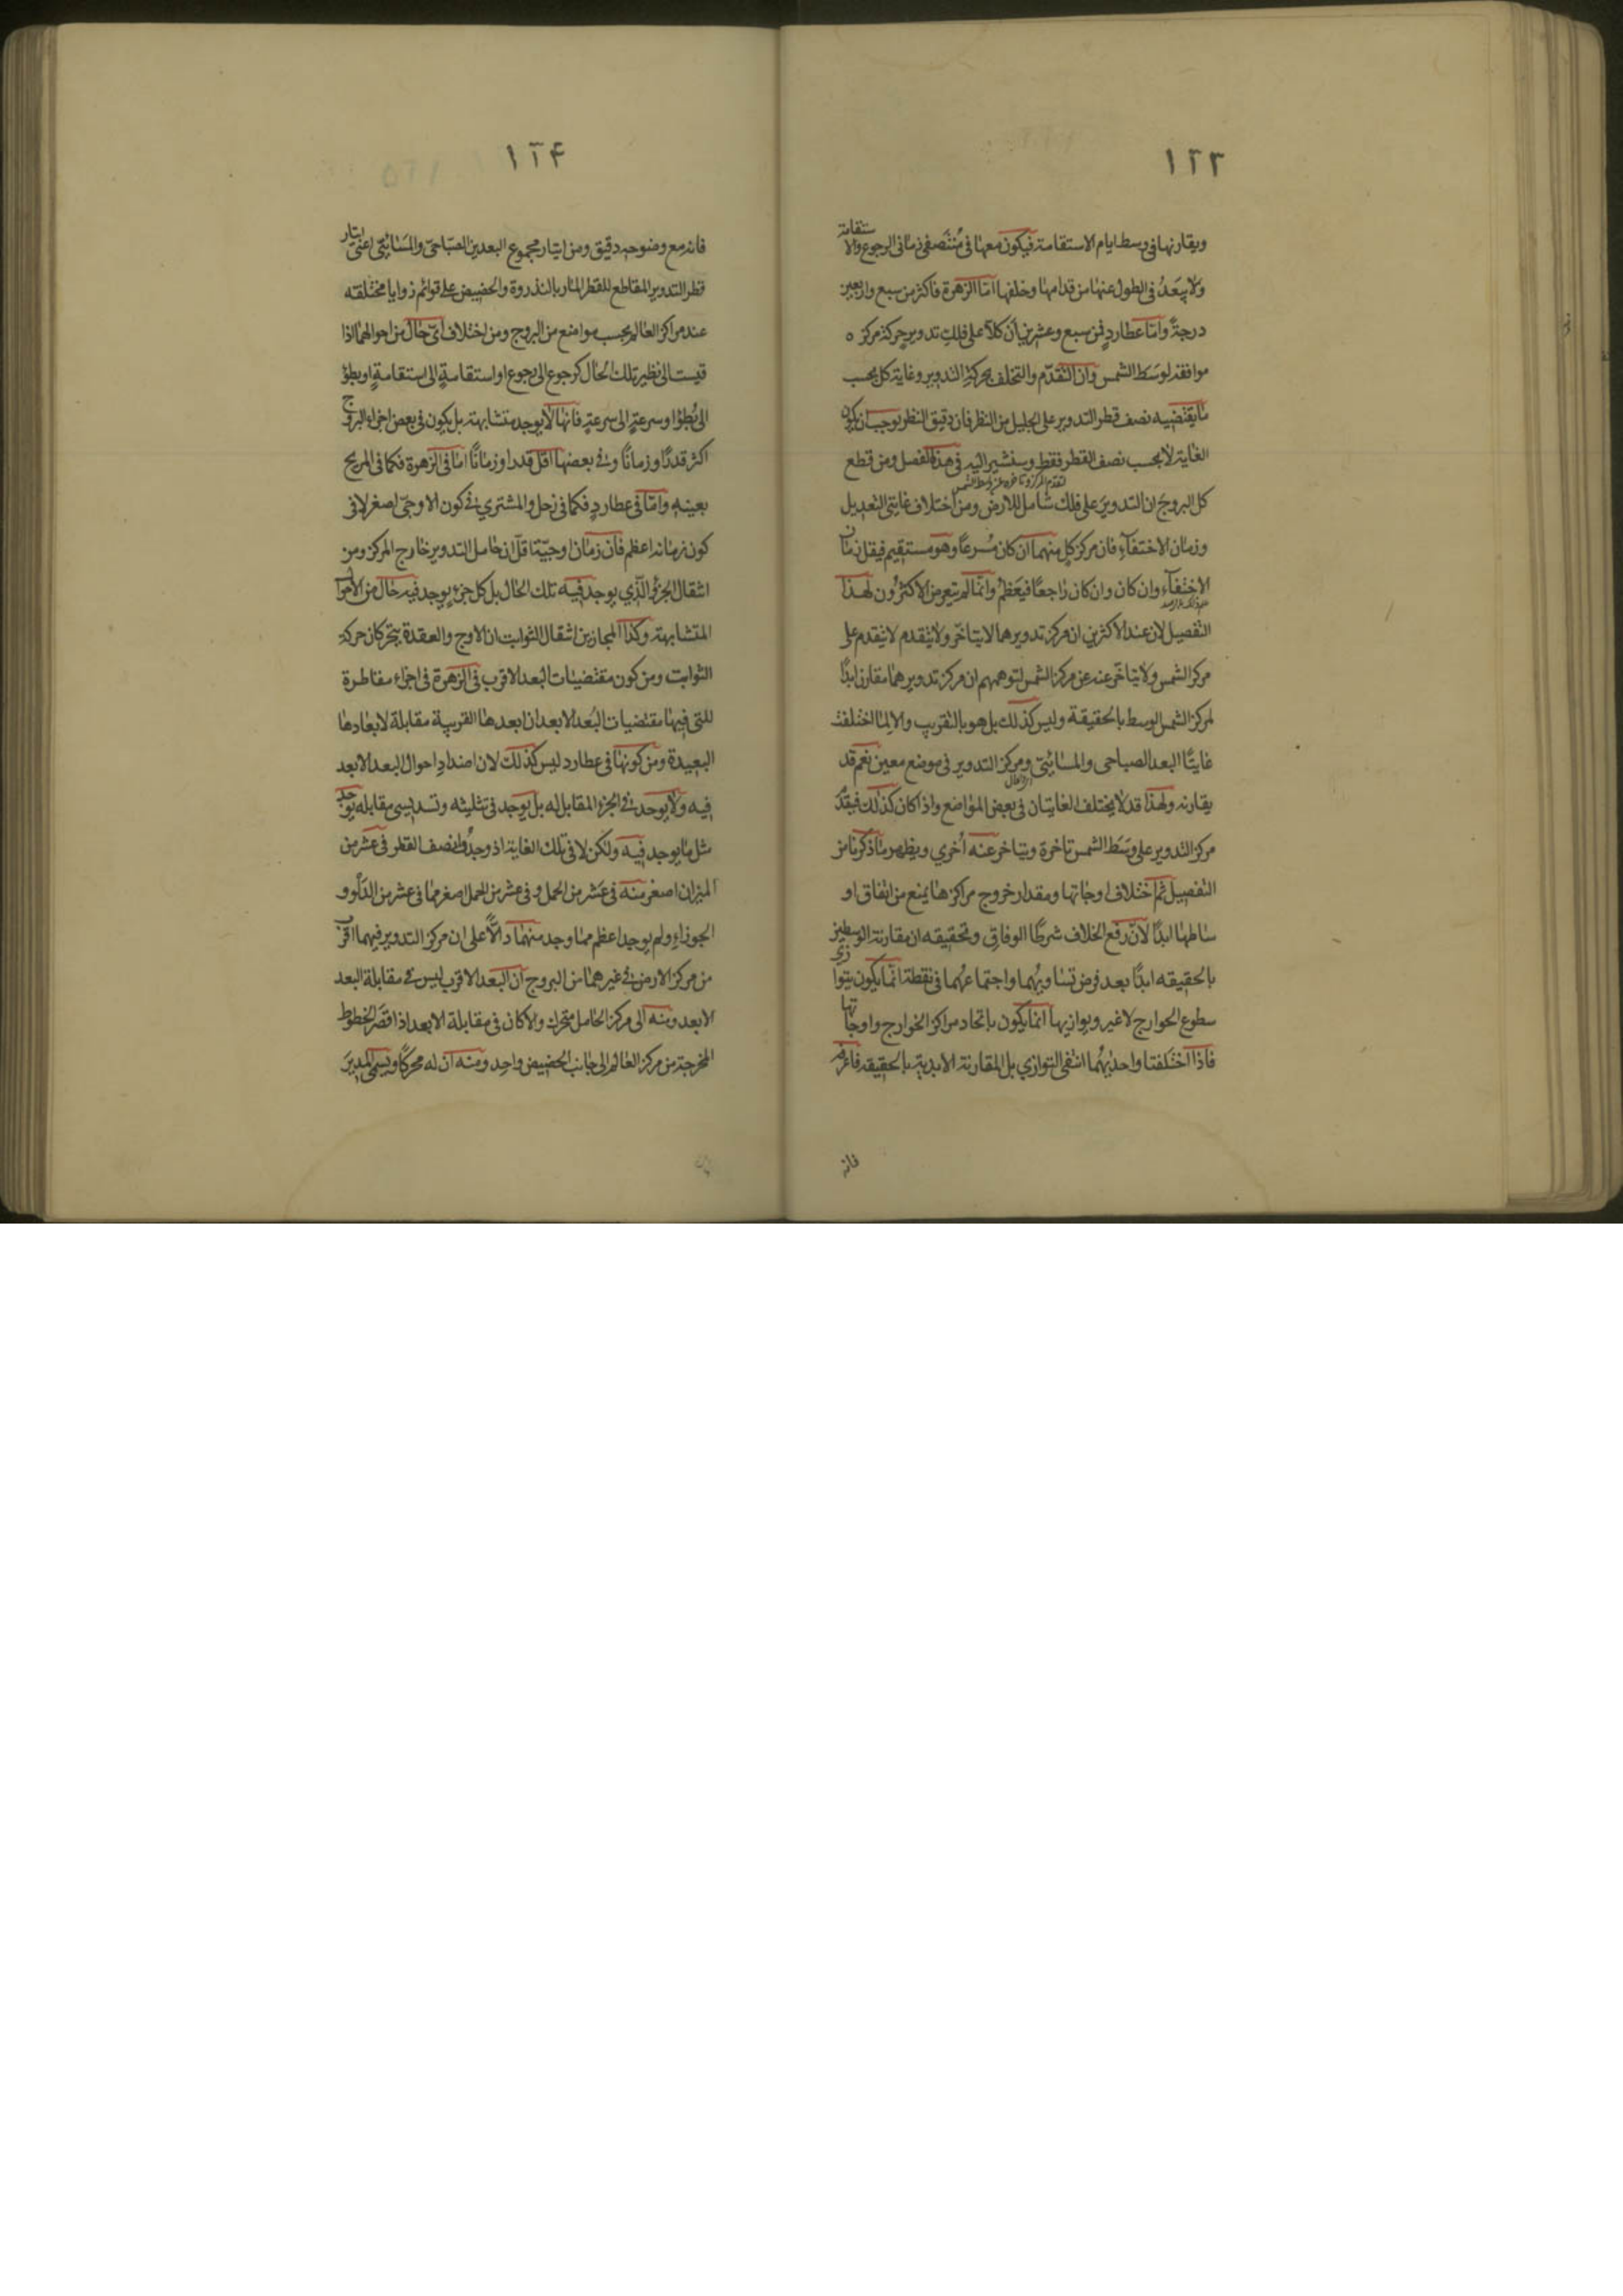 ١٢٣
ويقارنها في وسط ايام الاستقامة فيكون معها في منتصفى زمانى الرجوع والاستقامة
ولا يبعد في الطول عنها من قدامها وخلفها اما الزهرة فاكثر من سبع واربعين
درجة واما عطارد فمن سبع وعشرين أن كلا على فلك تدوير حركة مركزه
موافقة لوسط الشمس وان التقدم والتخلف بحركة التدوير وغاية كل بحسب
ما يقتضيه نصف قطر التدوير على الجليل من النظر فان دقيق النظر يوجب ان يكون
الغاية لا بحسب نصف القطر فقط وسنشير اليه في هذا الفصل ومن قطع
لتقدم المركز وتاخره عن وسط الشمس
كل البروج ان التدوير على فلك شامل للارض ومن اختلاف غايتى التعديل
وزمان الاختفاء فان مركز كل منهما ان كان مسرعا وهو مستقيم فيقل زمان
الاختفاء وان كان وان كان راجعا فيعظم وانما لم يتعرض الاكثرون لهذا
التفصيل لان عند الاكثرين ان مركز تدويرهما لا يتاخر ولا يتقدم لا يتقدم على
مركز الشمس ولا يتاخر عنه عن مركز الشمس لتوهمهم ان مركز تدويرهما مقارن ابدا
لمركز الشمس الوسط بالحقيقة وليس كذلك بل هو بالتقريب والا لما اختلفت
غايتا البعد الصباحى والمسائيى ومركز التدوير في موضع معين نعم قد
يقارنه ولهذا قد لا يختلف الغايتان في بعض المواضع واذا كان كذلك فيقدم
مركز التدوير على وسط الشمس تاخرة ويتاخر عنه أخري ويظهر ما ذكرنا من
التفصيل ثم اختلاف اوجاتها ومقدار خروج مراكزها يمنع من اتفاق او
ساطها ابدا لان رفع الخلاف شرط الوفاق وتحقيقه ان مقارنة الوسطين
بالحقيقه ابدا بعد فرض تساويهما واجتماعهما في نقطة انما يكون بتوازي
سطوع الخوارج لا غير ويوازيها انما يكون باتحاد مراكز الخوارج واوجاتها
فاذا اختلفتا واحديهما انتفى التوازي بل المقارنة الابدية بالحقيقه فاعرفه
فانه
١٢۴
فانه مع وضوحه دقيق ومن ايتار مجموع البعدين الصباحى والمسائيى اعنى ايتار
قطر التدوير المقاطع للقطر المار بالذروة والحضيض على قوائم زوايا مختلفه
عند مراكز العالم بحسب مواضع من البروج ومن اختلاف اى حال من احوالهما اذا
قيست الى نظير تلك الحال كرجوع الى رجوع او استقامة الى استقامة او بطؤ
الى بطؤ او سرعة الى سرعة فانها لا يوجد متشابهة بل يكون في بعض اجزاء البروج
اكثر قدرا وزمانا وفي بعضها اقل قدرا وزمانا اما في الزهرة فكما في المريخ
بعينه واما في عطارد فكما في زحل والمشتري في كون الاوجى اصغر لا في
كون زمانه اعظم فان زمان اوجيتها قل ان حامل التدوير خارج المركز ومن
انتقال الجزؤ الذي يوجد فيه تلك الحال بل كل جزء يوجد فيه حال من الاحوال
المتشابهة وكذا المجازين انتقال الثوابت ان الاوج والعقدة يتحركان حركة
الثوابت ومن كون مقتضيات البعد الاقرب في الزهرة في اجزاء مقاطرة
للتى فيها مقتضيات البعد الابعد ان ابعدها القريبة مقابلة لابعادها
البعيدة ومن كونها في عطارد ليس كذلك لان اضداد احوال البعد الابعد
فيه ولا يوجد في الجزء المقابل له بل يوجد في تثليثه وتسديسى مقابله يوجد
مثل ما يوجد فيه ولكن لا في تلك الغاية اذ وجد نصف القطر في عشر من
الميزان اصغر منه في عشر من الحمل و في عشر من الحمل اصغر مما في عشر من الدلو و
الجوزاء ولم يوجد اعظم مما وجد منهما دالا على ان مركز التدوير فيهما اقرب
من مركز الارض في غيرهما من البروج ان البعد الاقرب ليس في مقابلة البعد
الابعد ومنه الى مركز الحامل متحرك والا كان في مقابلة الابعد اذ اقصر الخطوط
المخرجة من مركز العالم الى جانب الحضيض واحد ومنه ان له محركا ويسمى المدير